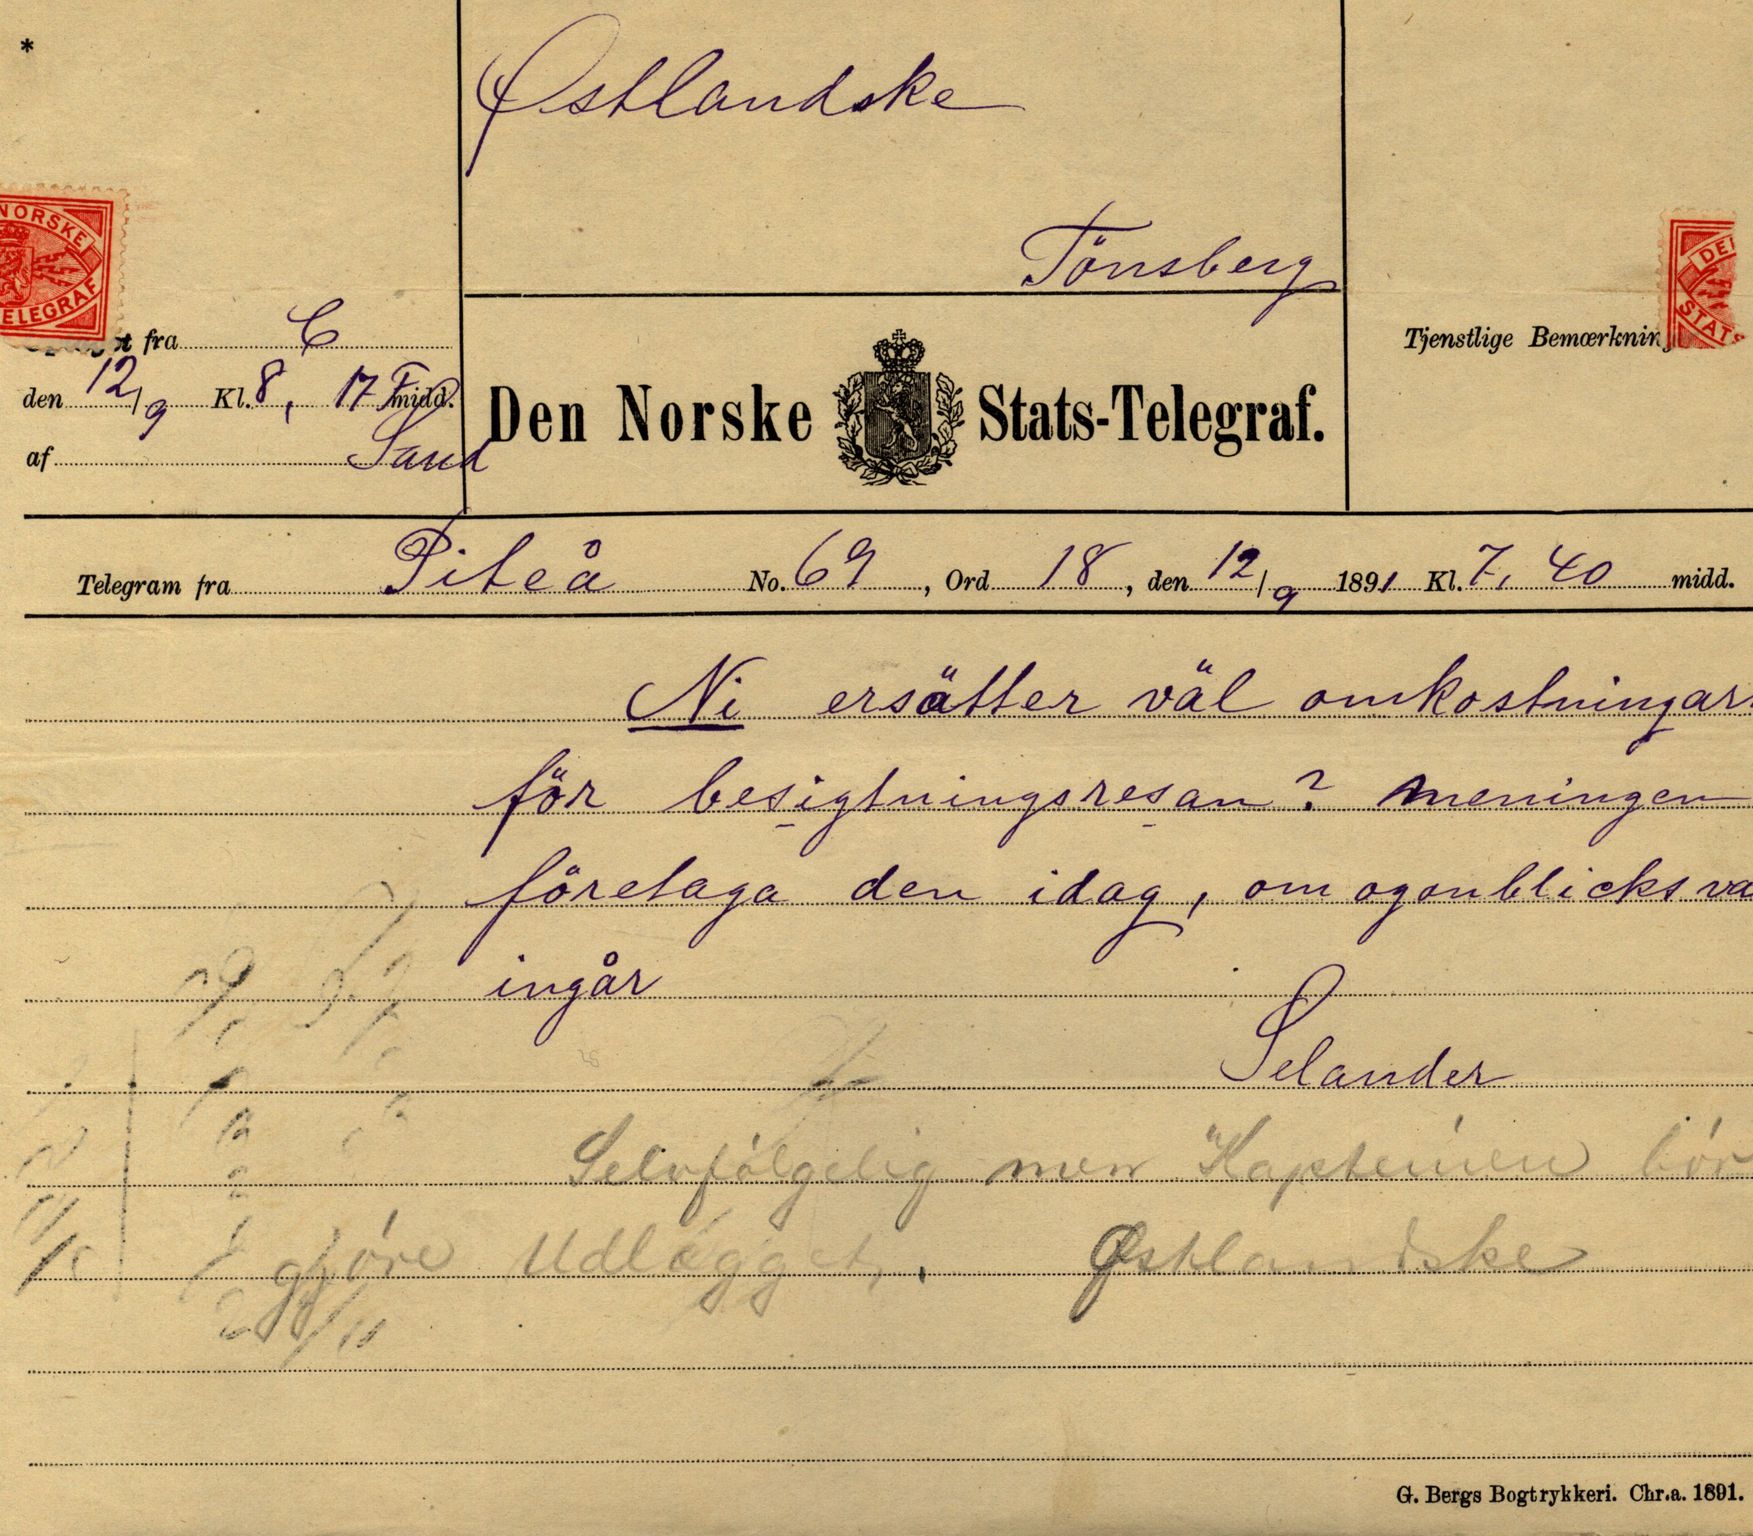 *
Østlandske
Tönsberg
NORSKE
TELEGRAF
DEN
STATS
fra C
den 12/9 Kl. 8, 17 F midd.
af Sand
Den Norske Stats-Telegraf.
Tjenstlige Bemærkning
Telegram fra Piteå No. 69, Ord 18, den 12/9 1891 Kl. 7, 40 midd.
Ni ersätter väl omkostningar
för besigtningsresan? meningen
företaga den idag, om ogonblicksva
ingår
Selander
Selvfölgelig men Kapteinen bör
gjöre Udlægget. Østlandske
G. Bergs Bogtrykkeri. Chr.a. 1891.